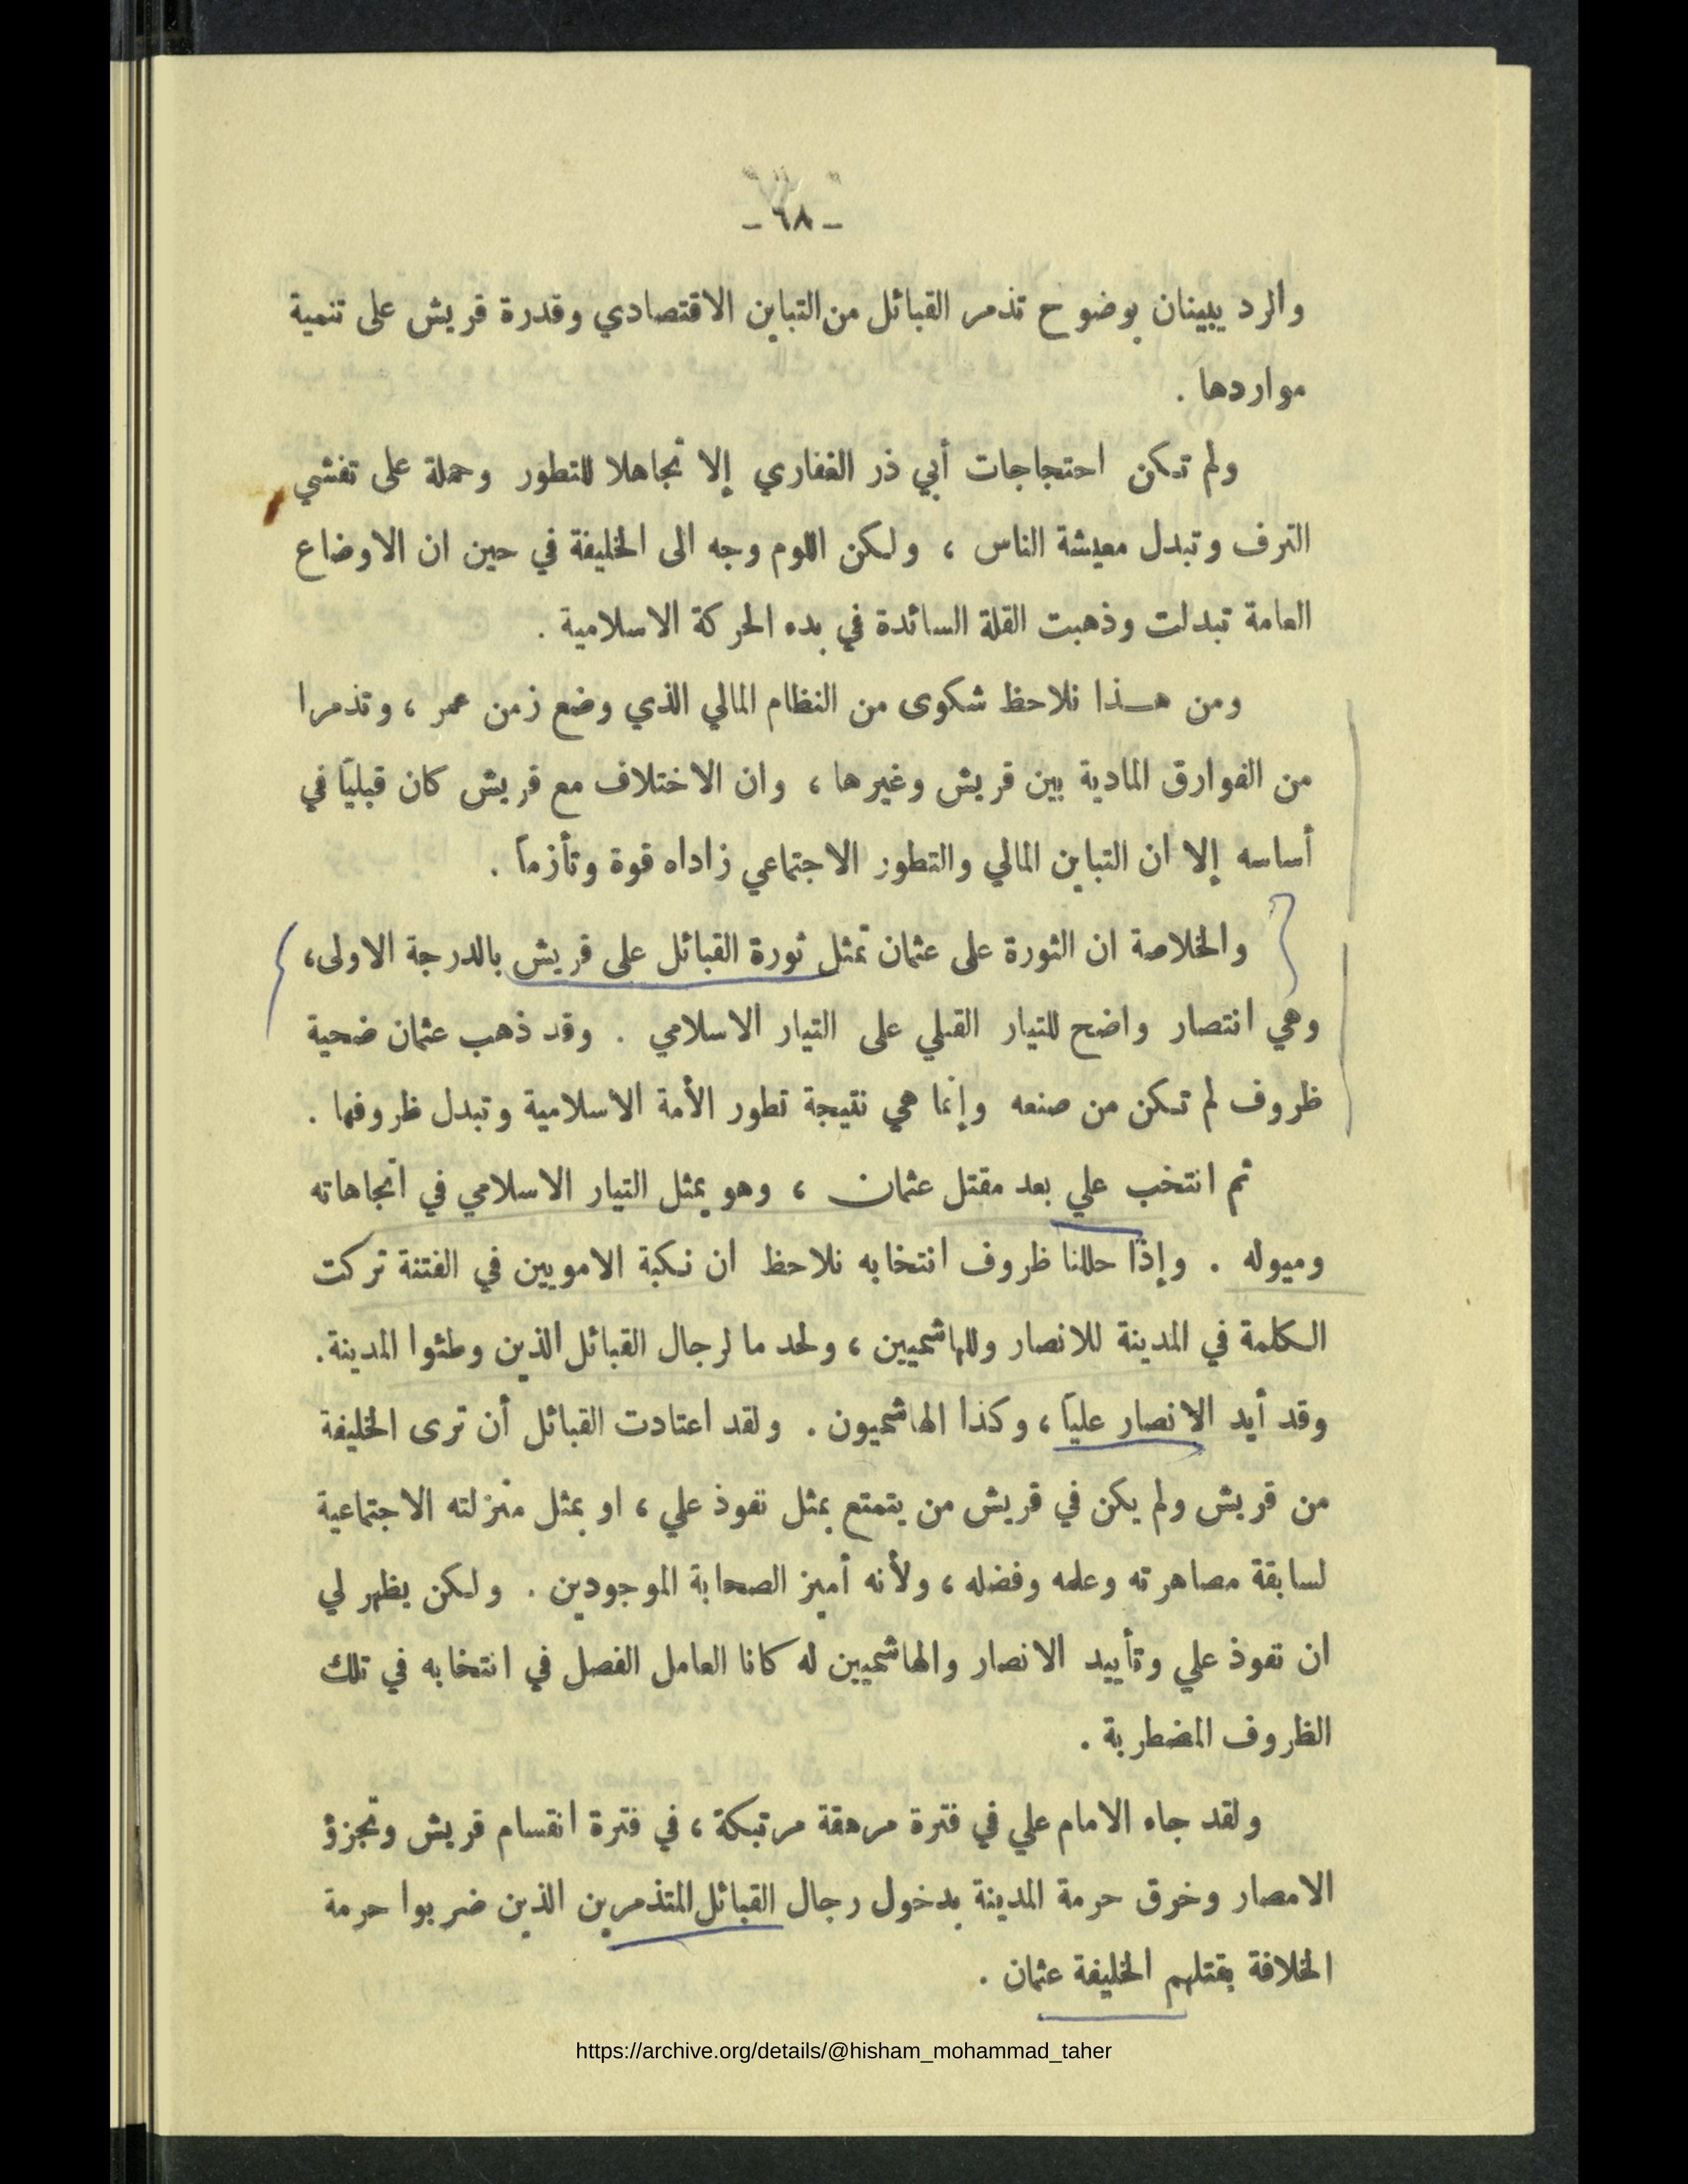 - ٦٨ -
والرد يبينان بوضوح تذمر القبائل من التباين الاقتصادي وقدرة قريش على تنمية
مواردها .
ولم تكن احتجاجات أبي ذر الغفاري إلا تجاهلا للتطور وحملة على تفشي
الترف وتبدل معيشة الناس ، ولكن اللوم وجه الى الخليفة في حين ان الاوضاع
العامة تبدلت وذهبت القلة السائدة في بدء الحركة الاسلامية .
ومن هـذا نلاحظ شكوى من النظام المالي الذي وضع زمن عمر ، وتذمرا
من الفوارق المادية بين قريش وغيرها ، وان الاختلاف مع قريش كان قبلياً في
أساسه إلا ان التباين المالي والتطور الاجتماعي زاداه قوة وتأزماً .
والخلاصة ان الثورة على عثمان تمثل ثورة القبائل على قريش بالدرجة الاولى،
وهي انتصار واضح للتيار القبلي على التيار الاسلامي . وقد ذهب عثمان ضحية
ظروف لم تكن من صنعه وإنما هي نتيجة تطور الأمة الاسلامية وتبدل ظروفها .
ثم انتخب علي بعد مقتل عثمان ، وهو يمثل التيار الاسلامي في اتجاهاته
وميوله . وإذا حللنا ظروف انتخابه نلاحظ ان نكبة الامويين في الفتنة تركت
الكلمة في المدينة للانصار وللهاشميين ، ولحد ما لرجال القبائل الذين وطئوا المدينة.
وقد أيد الانصار علياً ، وكذا الهاشميون . ولقد اعتادت القبائل أن ترى الخليفة
من قريش ولم يكن في قريش من يتمتع بمثل نفوذ علي ، او بمثل منزلته الاجتماعية
لسابقة مصاهرته وعلمه وفضله ، ولأنه أميز الصحابة الموجودين . ولكن يظهر لي
ان نفوذ علي وتأييد الانصار والهاشميين له كانا العامل الفصل في انتخابه في تلك
الظروف المضطربة .
ولقد جاء الامام علي في فترة مرهقة مرتبكة ، في فترة انقسام قريش وتجزؤ
الامصار وخرق حرمة المدينة بدخول رجال القبائل المتذمرين الذين ضربوا حرمة
الخلافة بقتلهم الخليفة عثمان .
https://archive.org/details/@hisham_mohammad_taher